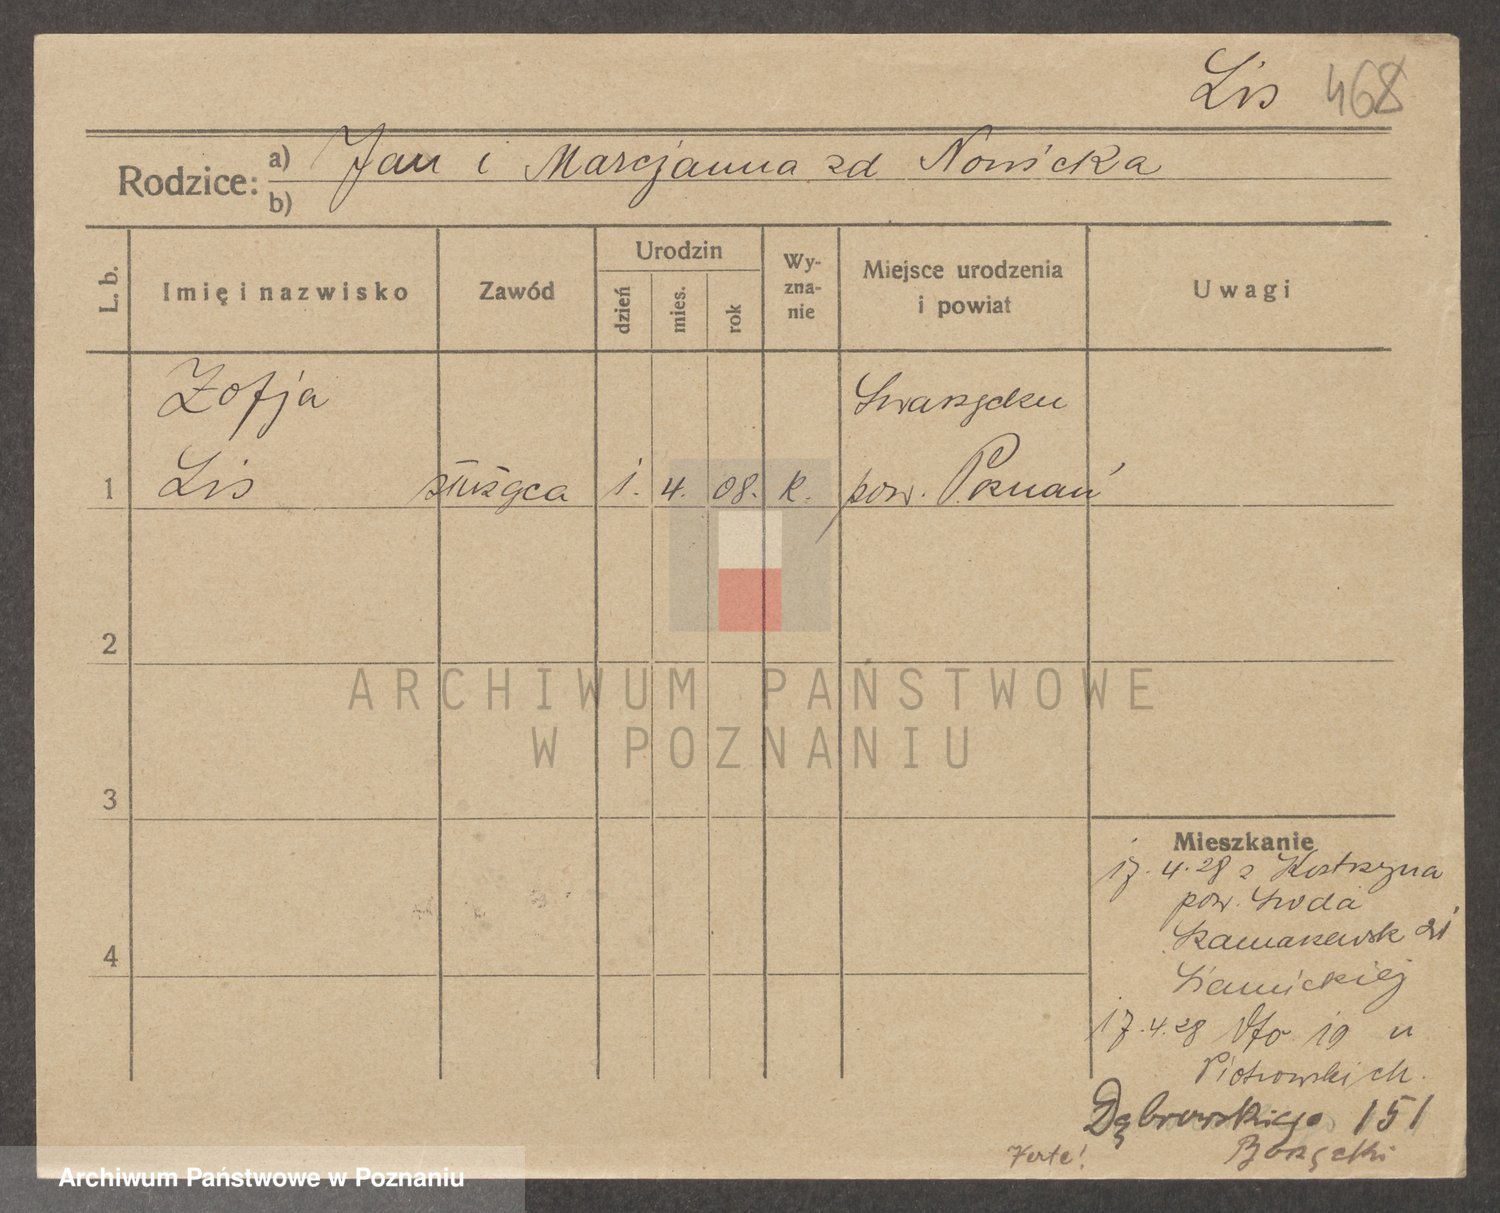 Lis 468
Rodzice: a) Jan i Marcjanna zd Nowicka
b)
L. b.
Imię i nazwisko
Zawód
Urodzin
dzień
mies.
rok
Wy-
zna-
nie
Miejsce urodzenia
i powiat
Uwagi
Zofja
Swarzędzu
1 Lis służąca 1. 4. 08. k. pow. Poznań
2
3
4
ARCHIWUM PAŃSTWOWE
W POZNANIU
Mieszkanie
17.4.28 z Kostrzyna
pow. Środa
17.4.28 19 u
Piotrowskich.
Dąbrowskiego 151
Verte!
Archiwum Państwowe w Poznaniu